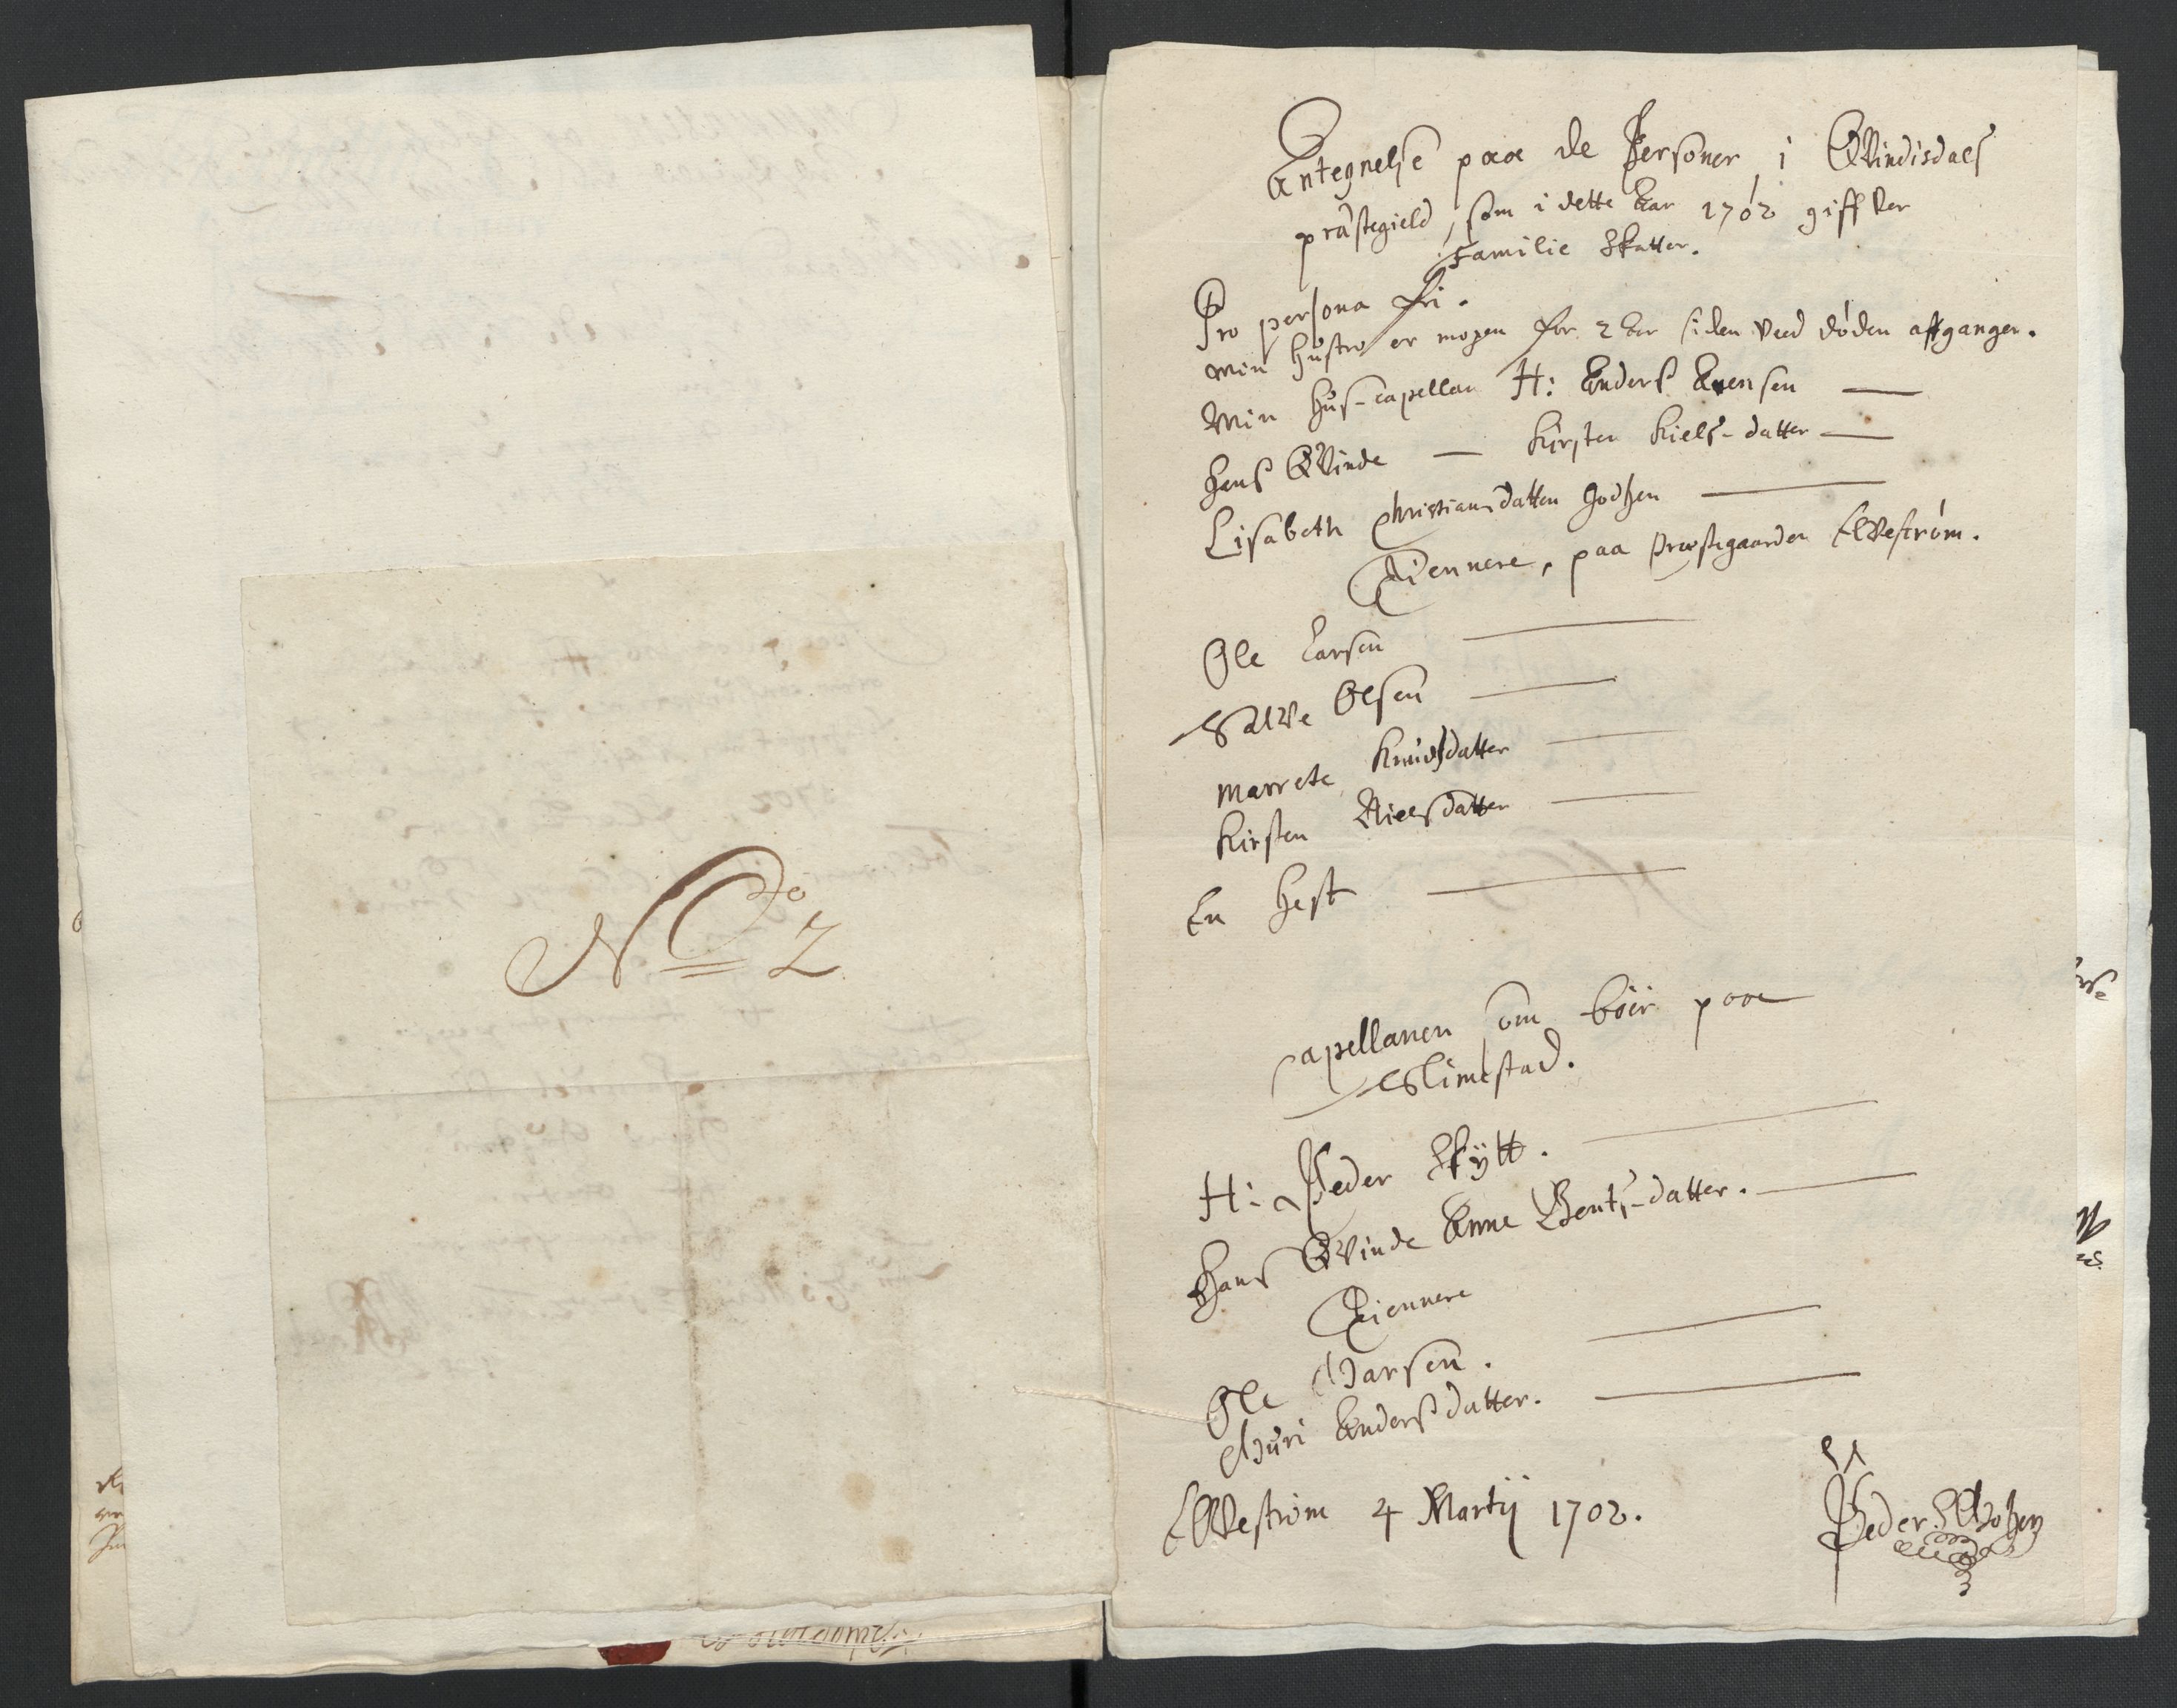 No 2
Antegnelse paa de Personer i Qvindisdals
præstegield, som i dette Aar 1702 giffver
Familie Skatter.
Pro persona fri.
min hustro er mogen for 2 Aar siden ved døden affgangen.
Min hus-capellan H: Anders Evensen
hans Qvinde — Kirsten Niels-datter
Lisabeth Christiansdatter Godtzen
Tiennere, paa Præstegaarden Elvestrøm.
Ole Larsen
Salve Olsen
Marrete Knudsdatter
Kirsten Nielsdatter
En hest
Capellanen som boer paa
Slimestad.
H: Peder Skytt.
Hans Qvinde Anne Bents-datter.
Tiennere
Ole Marsen.
Guri Andersdatter.
Elvestrøm 4 Martij 1702.
Peder